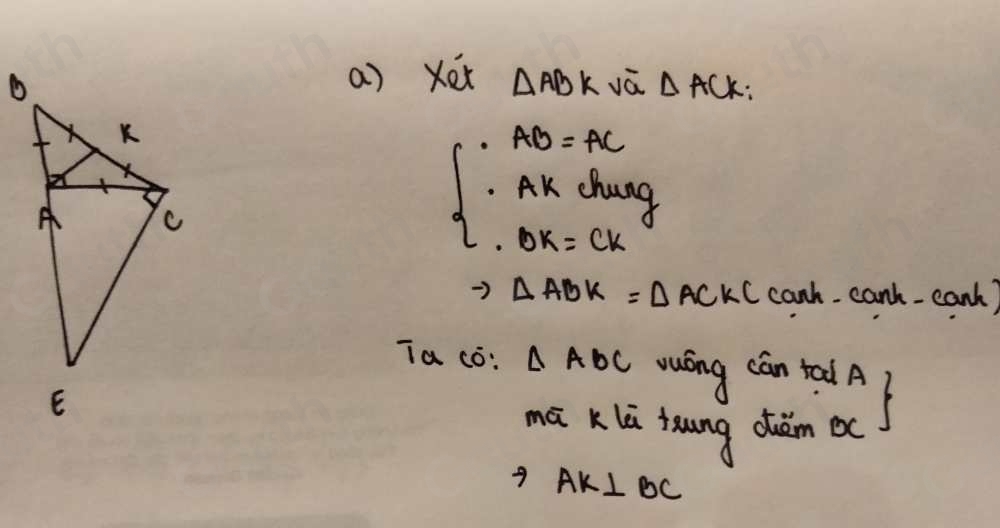 a) Xét Δ ABK và Δ ACK:
. AB = AC
. AK chung
. BK = CK
→ Δ ABK = Δ ACK ( cạnh - cạnh - cạnh )
Ta có: Δ ABC vuông cân tại A
mà K là trung điểm BC
→ AK ⊥ BC
B
K
A
C
E